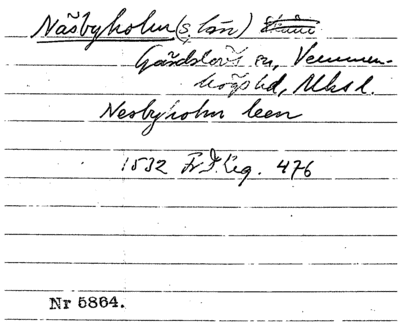 Näsbyholm (s. län)
Gärdslövs sn, Vemmen-
högs hd, Mks l.
Nesbyholm leen
1532 Fr. I. Reg. 476
Nr 5864.